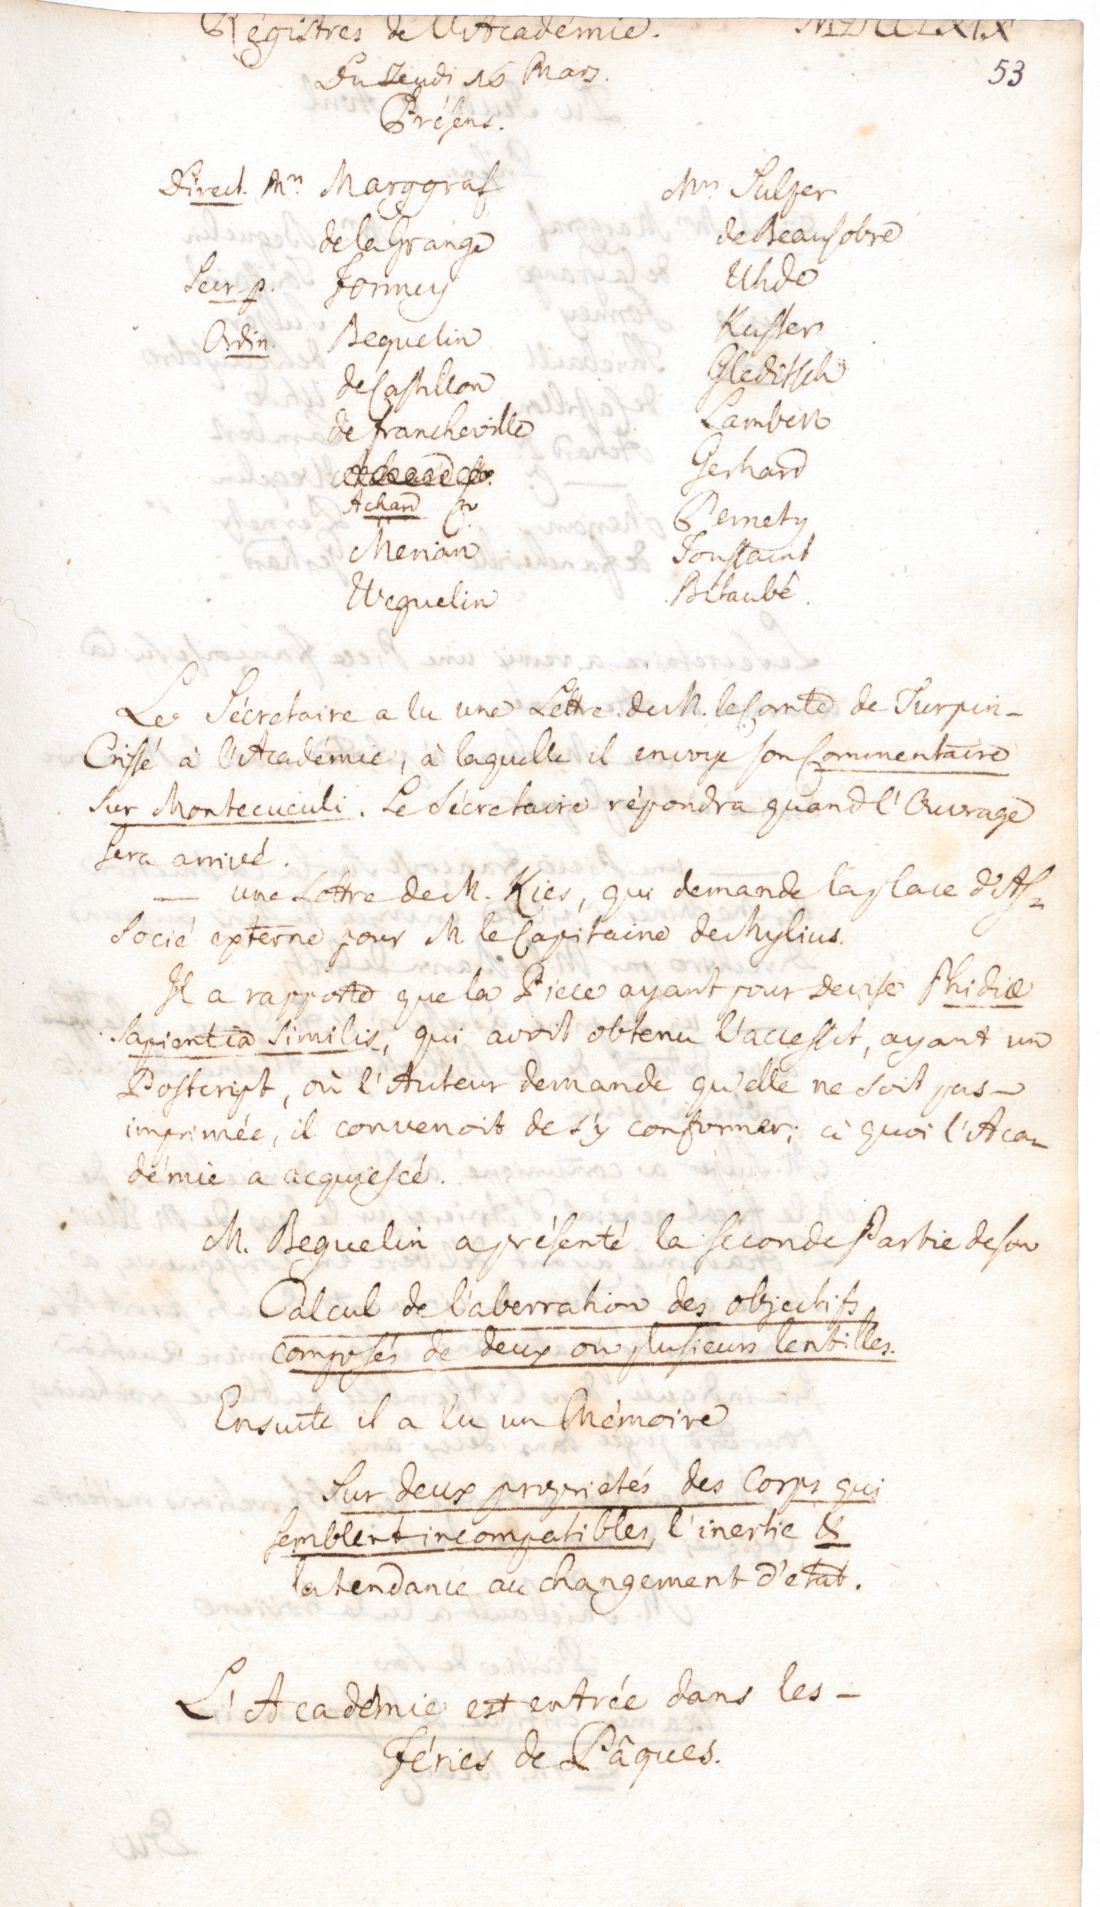 Régistres de l'Académie. MDCCLXIX
53
Du Jeudi 16 Mars.
Présens.
Direct. Mrs Marggraf
de la Grange
Secr. p. Formey
Ordin. Beguelin
de Castillon
de Francheville
Achard
Merian
Weguelin
Mrs Sulzer
de Beausobre
Uhde
Kuster
Gleditsch
Lambert
Gerhard
Pernety
Toussaint
Bitaubé.
Le Sécretaire a lu une Lettre de M. le Comte de Turpin-
Crissé à l'Académie, à laquelle il envoye son Commentaire
sur Montecuculi. Le Sécretaire répondra quand l'Ouvrage
sera arrivé.
— une Lettre de M. Kies, qui demande la place d'As-
socié externe pour M le Capitaine de Mylius.
Il a rapporté que la Piece ayant pour devise Phidiæ
sapientia similis, qui avoit obtenu l'accessit, ayant un
Postcript, où l'Auteur demande qu'elle ne soit pas
imprimée, il convenoit de s'y conformer; à quoi l'Aca-
démie a acquiescé.
M. Beguelin a présenté la seconde Partie de son
Calcul de l'aberration des objectifs
composés de deux ou plusieurs lentilles.
Ensuite il a lu un Mémoire
Sur deux proprietés des Corps qui
semblent incompatibles, l'inertie &
la tendance au changement d'etat.
L'Académie est entrée dans les
Féries de Pâques.